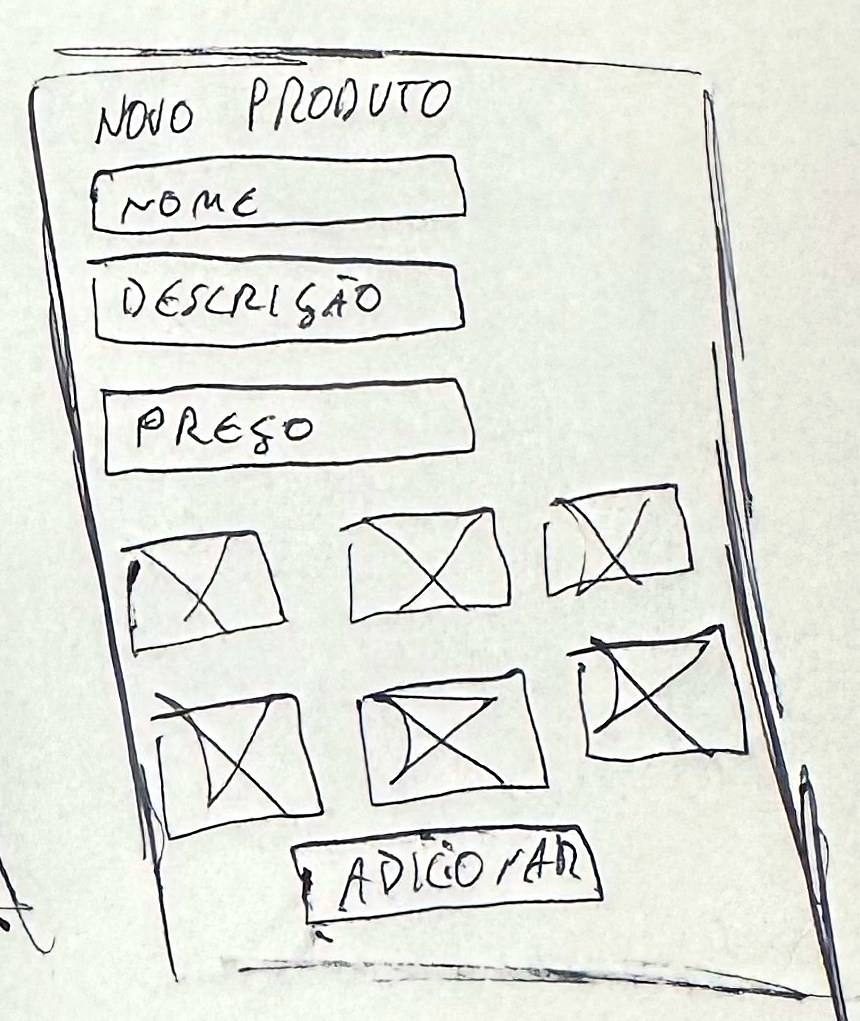 NOVO PRODUTO
NOME
DESCRIÇÃO
PREÇO
ADICIONAR